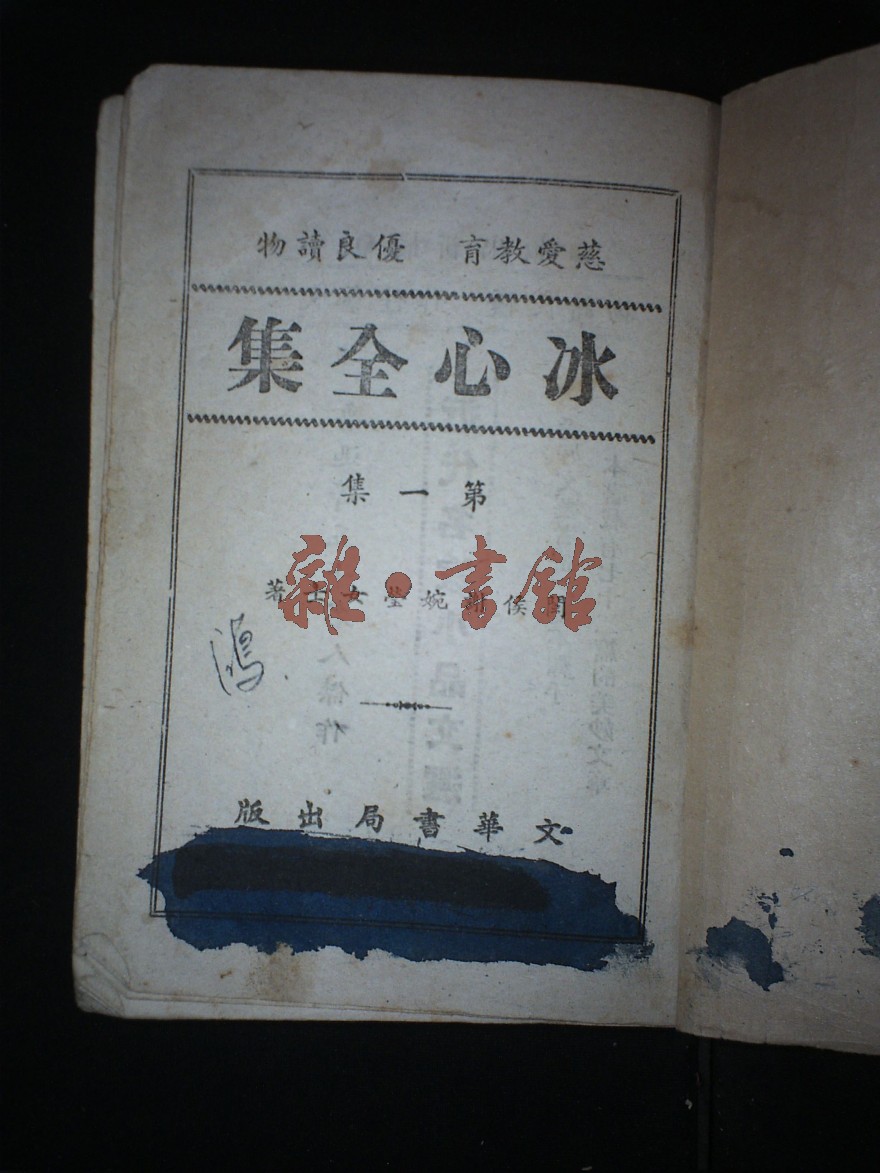 慈愛教育　優良讀物
冰心全集
第一集
閩侯謝婉瑩女士著
雜·書館
鴻
文華書局出版